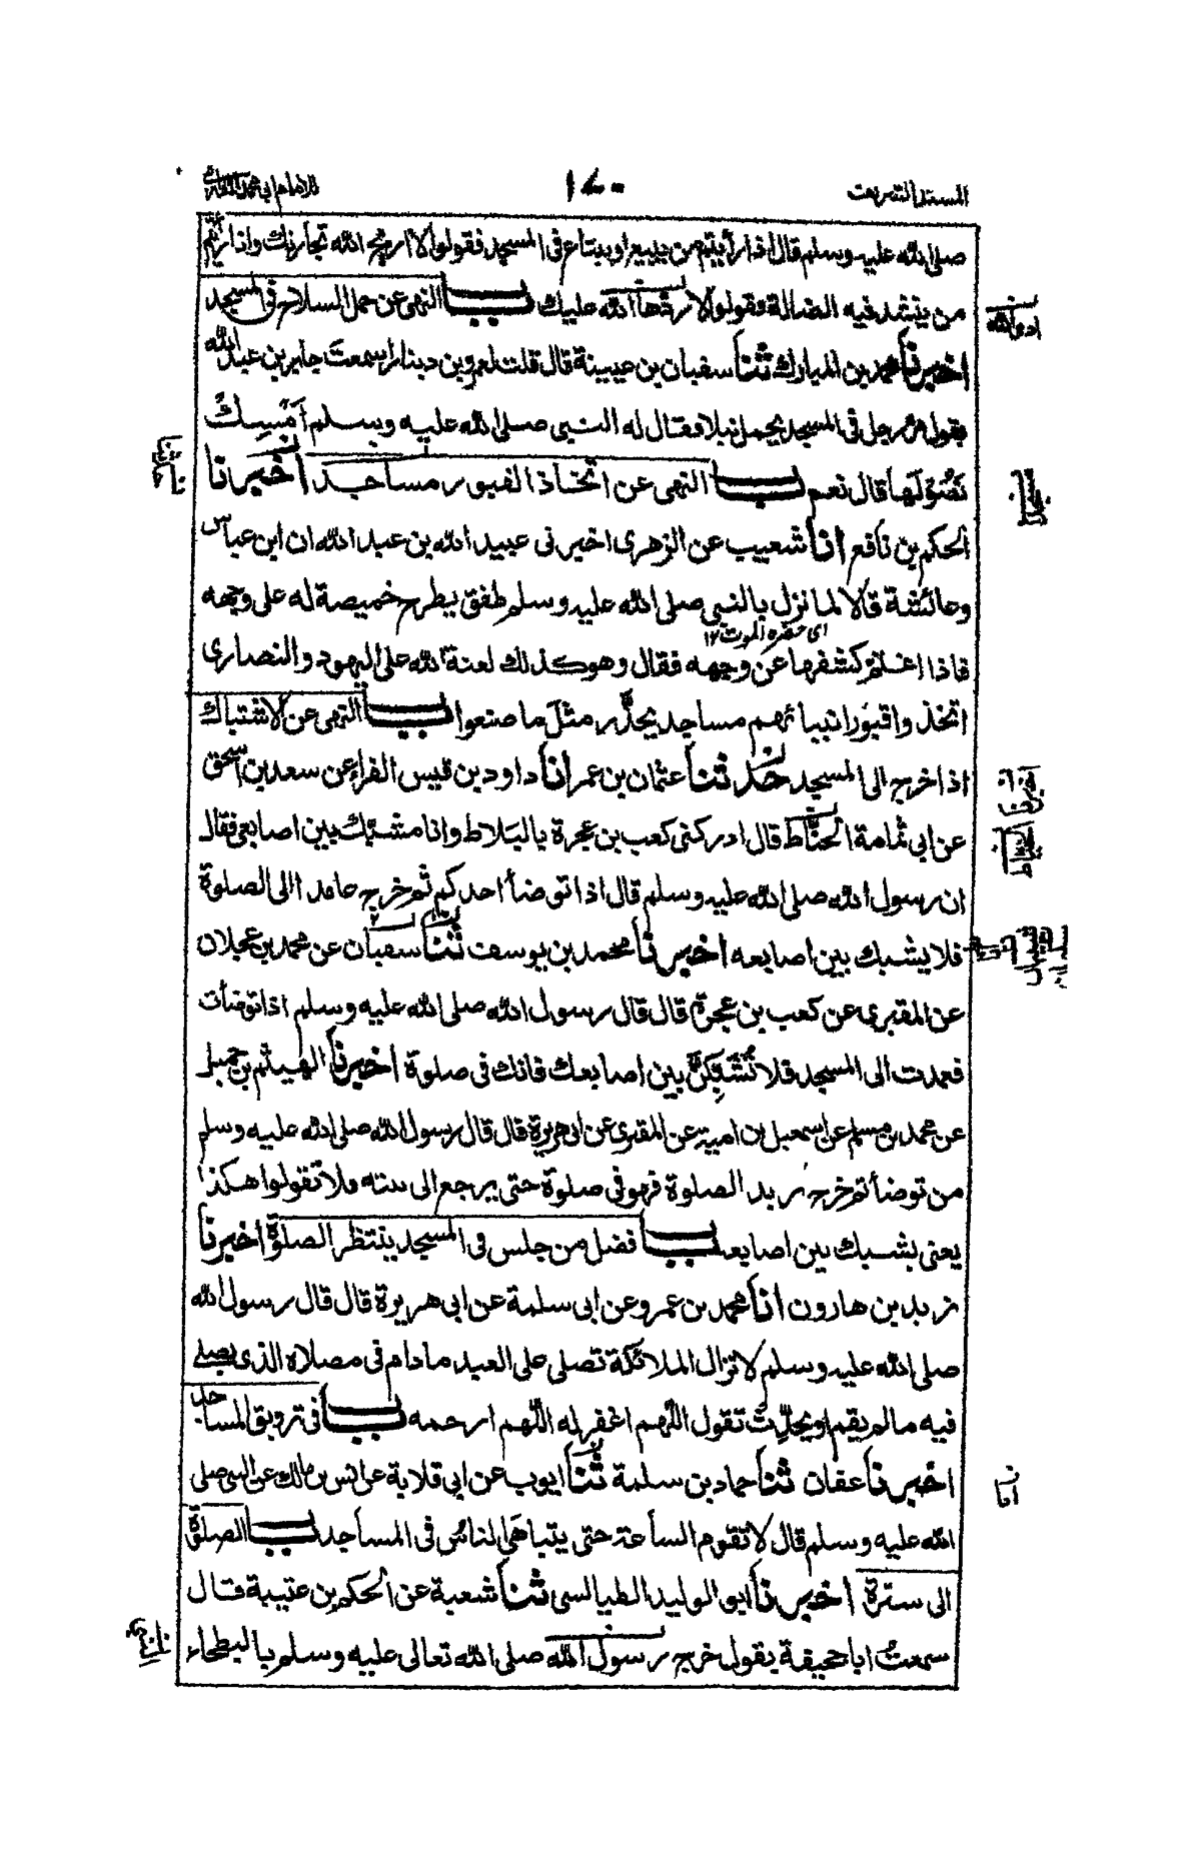 المسند الشريف
١٧٠
للامام ابى محمد
صلى الله عليه وسلم قال اذا رأيتم من يبيع او يبتاع فى المسجد فقولوا لا اربح الله تجارتك واذا رأيتم
من ينشد فيه الضالة فقولوا لا ردها الله عليك باب النهى عن حمل السلاح فى المسجد
اخبرنا محمد بن المبارك ثنا سفيان بن عيينة قال قلت لعمرو بن دينار اسمعت جابر بن عبد الله
يقول مر رجل فى المسجد يحمل نبلا فقال له النبى صلى الله عليه وسلم اَمْسِكْ
نصولها قال نعم باب النهى عن اتخاذ القبور مساجد اخبرنا
الحكم بن نافع انا شعيب عن الزهرى اخبرنى عبيد الله بن عبد الله ان ابن عباس
وعائشة قالا لما نزل بالنبى صلى الله عليه وسلم طفق يطرح خميصة له على وجهه
اى حضره الموت ١٢
فاذا اغتم كشفها عن وجهه فقال وهو كذلك لعنة الله على اليهود والنصارى
اتخذوا قبور انبيائهم مساجد يحذّر مثل ما صنعوا باب النهى عن الاشتباك
اذا خرج الى المسجد حدثنا عثمان بن عمر انا داود بن قيس الفراء عن سعد بن اسحق
عن ابى ثمامة الحنّاط قال ادركنى كعب بن عجرة بالبلاط وانا مشبّك بين اصابعى فقال
ان رسول الله صلى الله عليه وسلم قال اذا توضأ احدكم ثم خرج عامدا الى الصلوة
فلا يشبك بين اصابعه اخبرنا محمد بن يوسف ثنا سفيان عن محمد بن عجلان
عن المقبرى عن كعب بن عجرة قال قال رسول الله صلى الله عليه وسلم اذا توضأت
فعمدت الى المسجد فلا تُشَبِّكَنَّ بين اصابعك فانك فى صلوة اخبرنا الهيثم بن جميل
عن محمد بن مسلم عن اسمعيل بن امية عن المقبرى عن ابى هريرة قال قال رسول الله صلى الله عليه وسلم
من توضأ ثم خرج يريد الصلوة فهو فى صلوة حتى يرجع الى بيته فلا تقولوا هكذا
يعنى يشبك بين اصابعه باب فضل من جلس فى المسجد ينتظر الصلوة اخبرنا
يزيد بن هارون انا محمد بن عمرو عن ابى سلمة عن ابى هريرة قال قال رسول الله
صلى الله عليه وسلم لا تزال الملائكة تصلى على العبد ما دام فى مصلاه الذى يصلى
فيه ما لم يقم او يحدث تقول اللهم اغفر له اللهم ارحمه باب فى تزويق المساجد
اخبرنا عفان ثنا حماد بن سلمة ثنا ايوب عن ابى قلابة عن انس بن مالك عن النبى صلى
الله عليه وسلم قال لا تقوم الساعة حتى يتباهى الناس فى المساجد باب الصلوة
الى سترة اخبرنا ابو الوليد الطيالسى ثنا شعبة عن الحكم بن عتيبة قال
سمعت ابا جحيفة يقول خرج رسول الله صلى الله تعالى عليه وسلم بالبطحاء